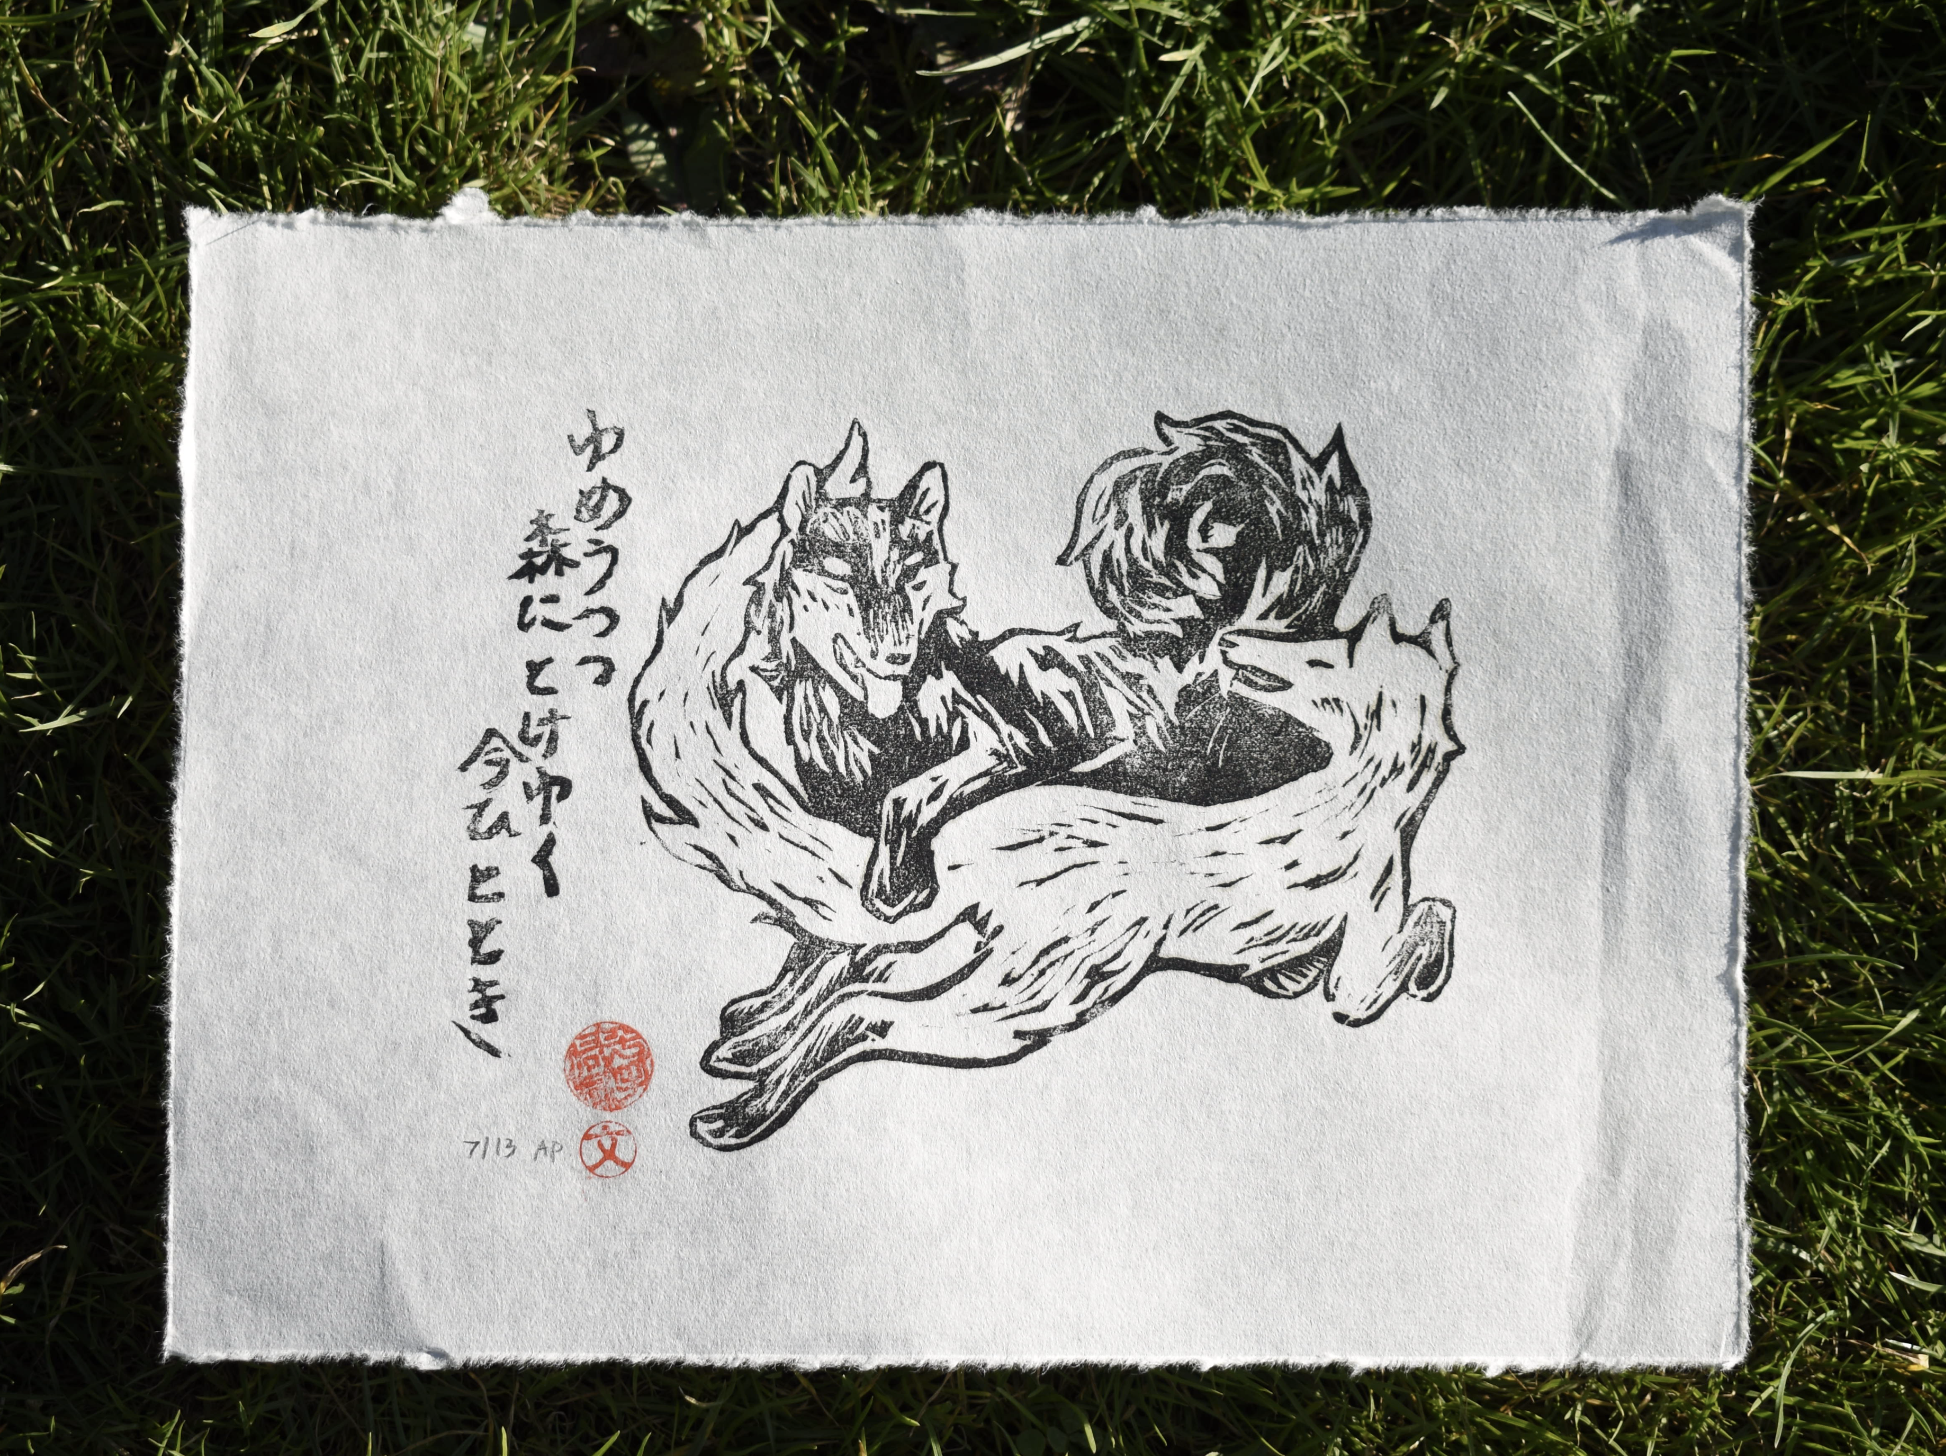 ゆめうつつ
森にとけゆく
今ひととき
文
7/13 AP